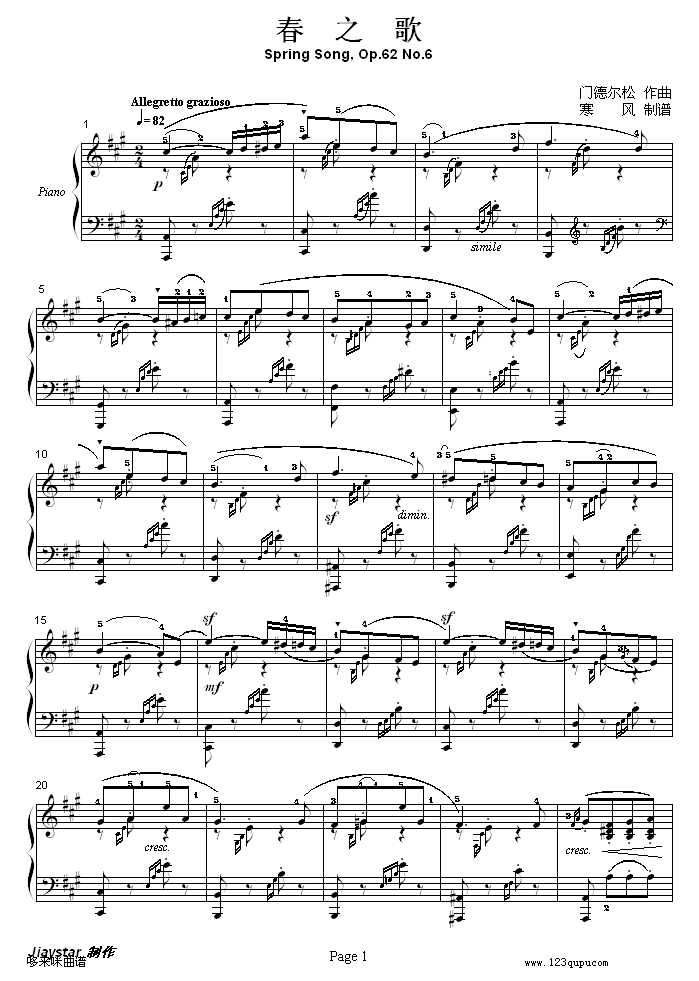 春 之 歌
Spring Song, Op.62 No.6
门德尔松 作曲
寒 风 制谱
Allegretto grazioso
♩= 82
1
Piano
p
simile
5
10
sf
dimin.
15
p
sf
mf
sf
20
cresc.
cresc.
Jiaystar 制作
哆来咪曲谱
Page 1
www.123qupu.com